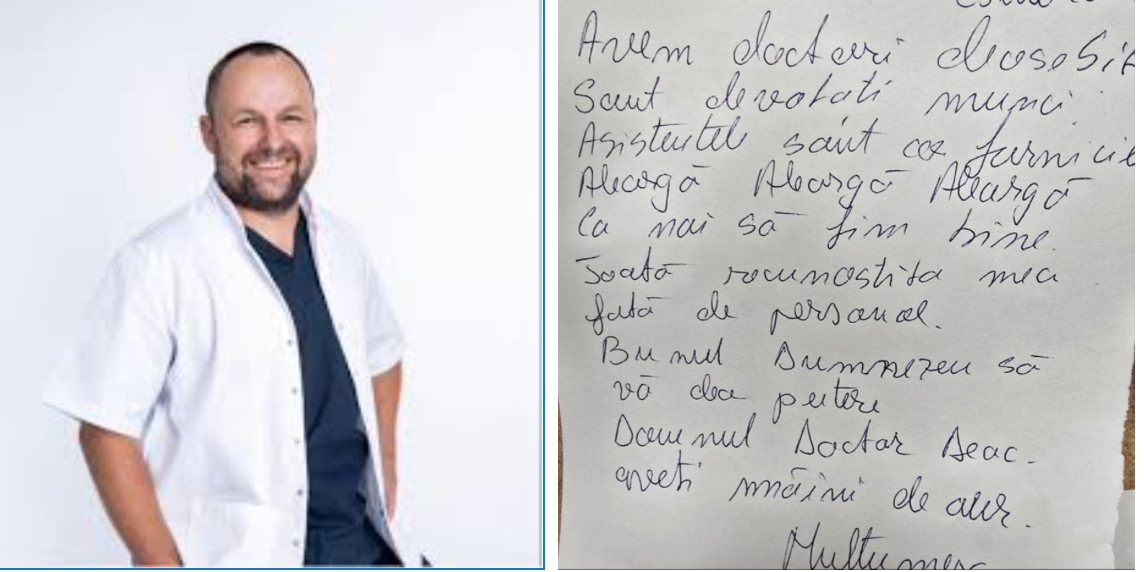 Avem doctori deosebi
Sant devotati munci
Asistentele sânt ca furnicil
Aleargă Aleargă Aleargă
Ca noi să fim bine.
Toată recunostita mea
fată de personal.
Bunul Dumnezeu să
vă dea putere
Domnul Doctor Deac.
aveti mâini de aur.
Multumesc